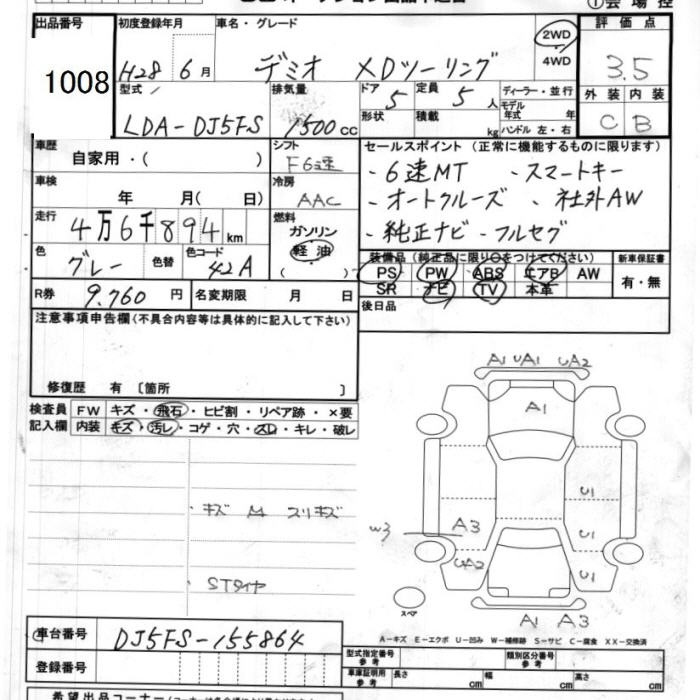 ①会場控
出品番号 初度登録年月 車名・グレード 評価点
1008 H28 6月 デミオ XDツーリング 2WD 4WD 3.5
型式 排気量 ドア 5 定員 5人 ディーラー・並行 外装 内装
形状 積載 kg モデル年式 年式 ハンドル 左・右
LDA-DJ5FS 1500cc C B
車歴 シフト セールスポイント(正常に機能するものに限ります)
自家用・( ) F6速 ・6速MT ・スマートキー
車検 冷房 ・オートクルーズ ・社外AW
年 月( 日) AAC
走行 燃料 ・純正ナビ・フルセグ
4万6千894km ガソリン
色 色替 色コード 軽油 装備品(純正品に限り○をつけてください) 新車保証書
グレー 42A ( ) PS PW ABS エアB AW 有・無
R券 9,760円 名変期限 月 日 SR ナビ TV 本革
注意事項申告欄(不具合内容等は具体的に記入して下さい) 後日品
修復歴 有〔箇所 〕
検査員 FW キズ・飛石・ヒビ割・リペア跡・×要
記入欄 内装 キズ・汚レ・コゲ・穴・スレ・キレ・破レ
A1 UA1 UA2
A1
U1
・キズ スリキズ
W3 A3
UA2 U1 U1
STタイヤ
スペア
A1 A3
A-キズ E-エクボ U-凹み W-補修跡 S-サビ C-腐食 XX-交換済
車台番号 DJ5FS-155864
型式指定番号 参考 類別区分番号 参考
登録番号 車庫証明用 参考 長さ cm 幅 cm 高さ cm
希望出品コーナー